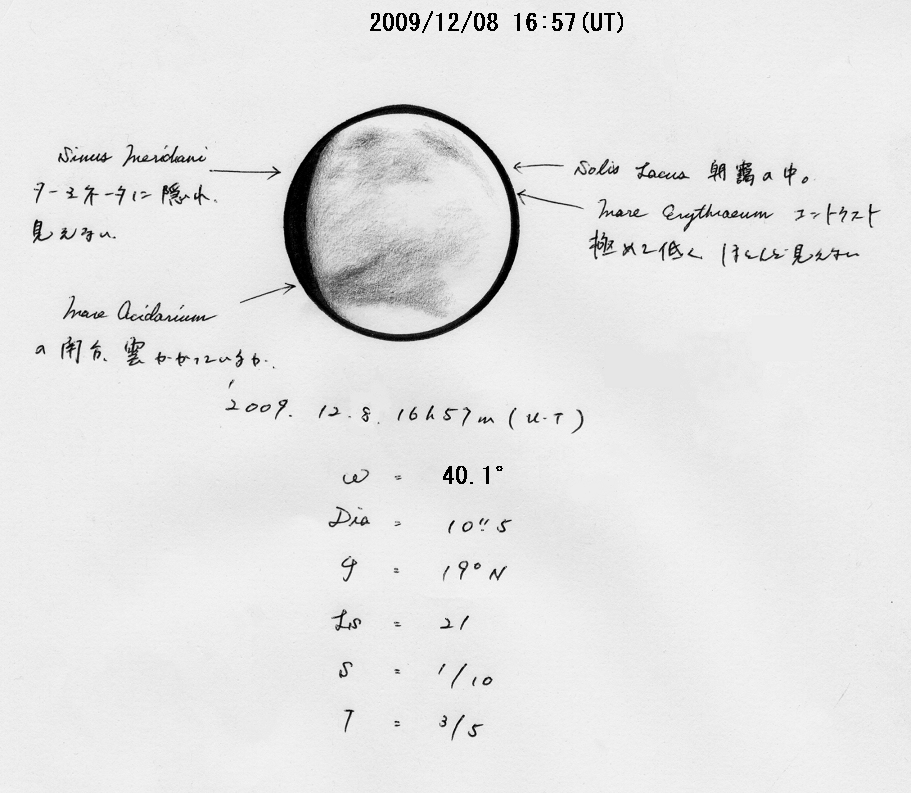 2009/12/08 16:57(UT)
Sinus Meridani
ターミネータに隠れ、
見えない.
Solis Lacus 朝霧の中。
Mare Erythraeum コントラスト
極めて低く ほとんど見えない
Mare Acidarium
の 雲かかっているか.
'2009. 12. 8. 16h57m (U.T)
ω = 40.1°
Dia = 10"5
φ = 19°N
Ls = 21
S = 1/10
T = 3/5